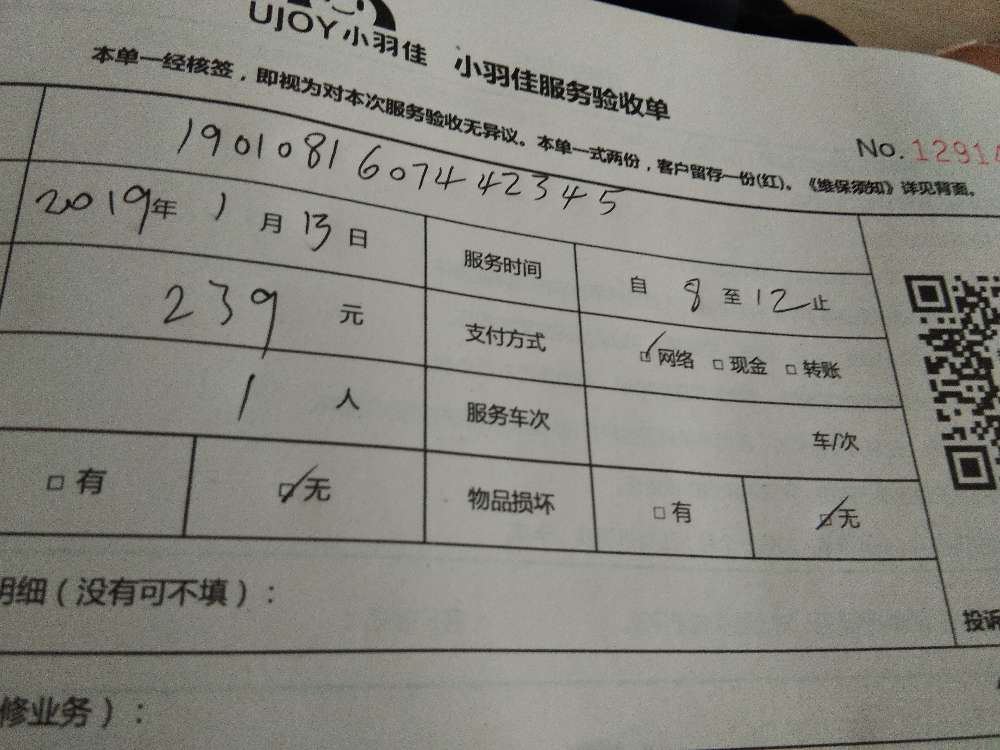 UJOY小羽佳 小羽佳服务验收单
本单一经核签，即视为对本次服务验收无异议。本单一式两份，客户留存一份(红)。《维保须知》详见背面。
No. 1291
190108160744 42345
2019年 1 月 13 日 服务时间 自 8 至 12 止
239 元 支付方式 ☑网络 □现金 □转账
1 人 服务车次 车/次
□有 ☑无 物品损坏 □有 ☑无
明细（没有可不填）： 投诉
修业务）：